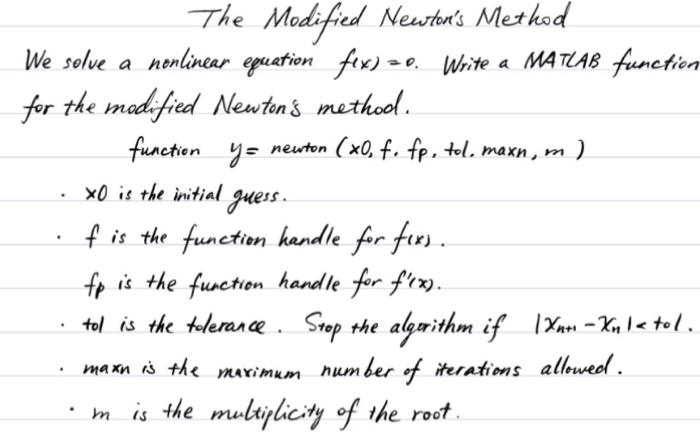 The Modified Newton's Method
We solve a nonlinear equation f(x) = 0. Write a MATLAB function
for the modified Newton's method.
function y = newton (x0, f, fp, tol, maxn, m )
· x0 is the initial guess.
· f is the function handle for f(x).
fp is the function handle for f'(x).
· tol is the tolerance. Stop the algorithm if |Xn+1 - Xn| < tol.
· maxn is the maximum number of iterations allowed.
· m is the multiplicity of the root.